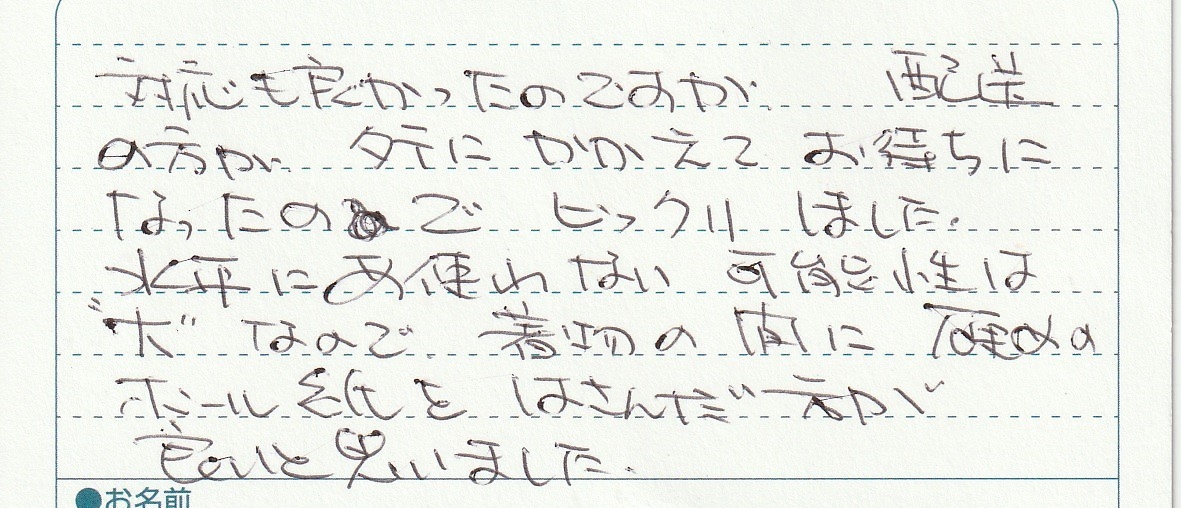 対応も良かったのですが 配送
の方が 縦にかかえて お待ちに
なったので ビックリしました。
水平にお使れない可能性は
"大"なので、着物の間に厚めの
ボール紙をはさんだ方が
良いと思いました。
●お名前